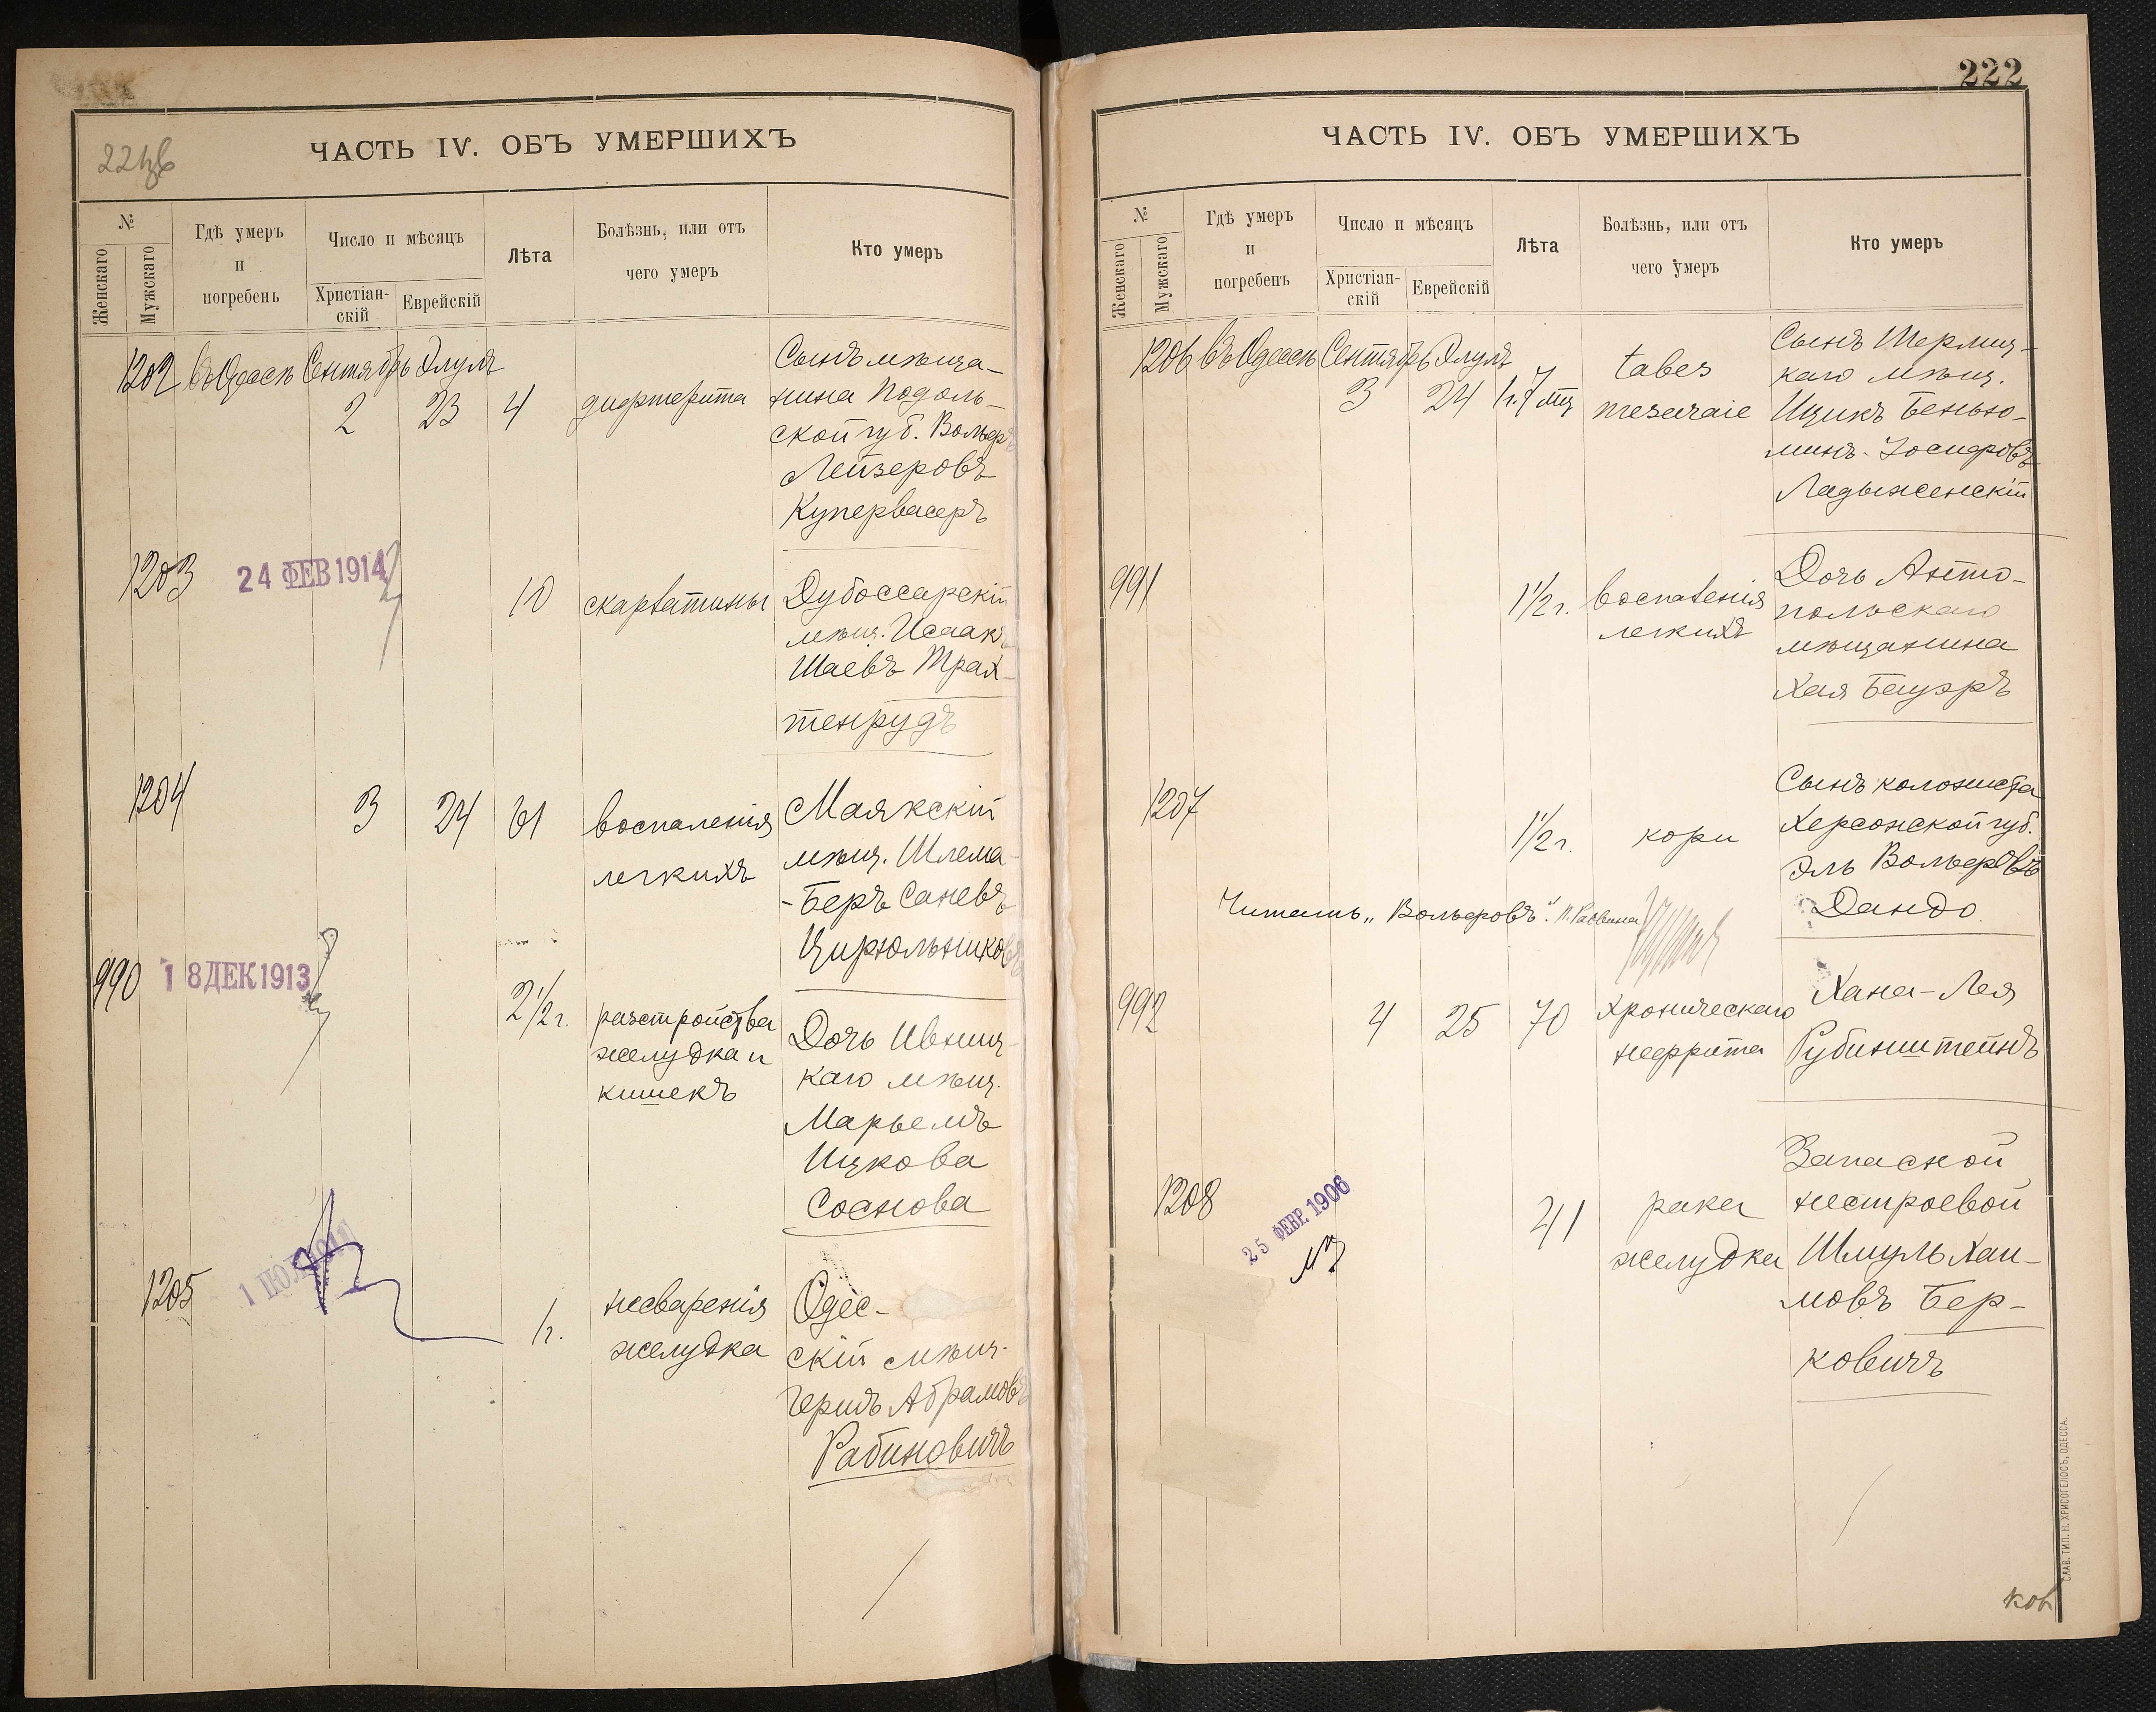 ЧАСТЬ IV. ОБЪ УМЕРШИХЪ
№
Женскаго
Мужскаго
Гдѣ умеръ
и
погребенъ
Число и мѣсяцъ
Христіан-
скій
Еврейскій
Лѣта
Болѣзнь, или отъ
чего умеръ
Кто умеръ
1202 въ Одессѣ Сентябрь Элулъ
2 23 4 дифтерита
Сынъ мѣща-
нина Подоль-
ской губ. Вольфъ
Лейзеровъ
Купервасеръ
1203
24 ФЕВ 1914
10 скарлатины
Дубоссарскій
мѣщ. Исаакъ
Шаевъ Трах-
тенрудъ
1204 3 24 61 воспаленія
легкихъ
Маякскій
мѣщ. Шлема
-Беръ Саневъ
Цирюльниковъ
990
18 ДЕК 1913
2 1/2 г. разстройства
желудка и
кишекъ
Дочь Ивниц-
каго мѣщ.
Марьемъ
Ицкова
Соснова
1205
1 г. несваренія
желудка
Одес-
скій мѣщ.
Гершъ Абрамовъ
Рабиновичъ
222
ЧАСТЬ IV. ОБЪ УМЕРШИХЪ
№
Женскаго
Мужскаго
Гдѣ умеръ
и
погребенъ
Число и мѣсяцъ
Христіан-
скій
Еврейскій
Лѣта
Болѣзнь, или отъ
чего умеръ
Кто умеръ
1206 въ Одессѣ Сентябрь Элулъ
3 24 1 г. 7 мц
tabes
meseraic
каго мѣщ.
Ицикъ Бенью-
минъ-Іосифовъ
Ладыженскій
991 1 1/2 г. воспаленія
легкихъ
Дочь Анто-
польскаго
мѣщанина
Хая Бауэръ
1207 1 1/2 г. кори
Сынъ колониста
Херсонской губ.
Эль Вольфовъ
Дандо
Читать „Вольфовъ“. П. Раввина
992 4 25 70 Хроническаго
нефрита
Хана-Лея
Рубинштейнъ
1208
25 ФЕВР. 1906
41 рака
желудка
Запасной
нестроевой
Шмуль Хаи-
мовъ Бер-
ковичъ
СЛАВ. ТИП. Н. ХРИСОГЕЛОСЪ, ОДЕССА.